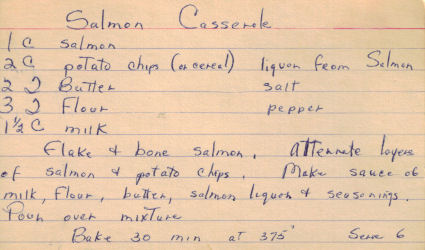 Salmon Casserole
1 C salmon
2 C potato chips (or cereal) liquor from Salmon
2 T Butter salt
3 T Flour pepper
1½ C milk
Flake & bone salmon. Alternate layers
of salmon & potato chips. Make sauce of
milk, flour, butter, salmon liquor & seasonings.
Pour over mixture
Bake 30 min at 375° Serve 6